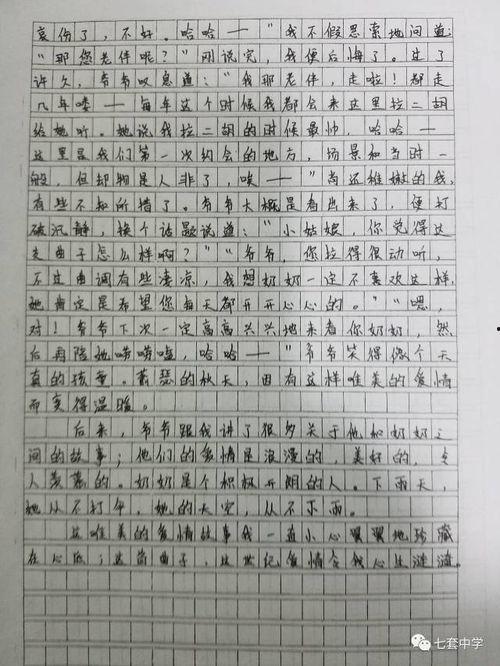 哀伤了，不好。哈哈—"我不假思索地问道：
"那您老伴呢？"刚说完，我便后悔了。过了
许久，爷爷叹息道："我那老伴，走啦！都走
几年喽—每年这个时候我都会来这里拉二胡
给她听。她说我拉二胡的时候最帅，哈哈—
这里是我们第一次约会的地方，场景和当时一
般，但却物是人非了，唉—"尚还稚嫩的我，
有些不知所措了。爷爷大概是看出来了，便打
破沉静，换个话题说道："小姑娘，你觉得这
支曲子怎么样啊？""爷爷，你拉得很动听，
不过曲调有些凄凉，我想奶奶一定不喜欢这样，
她肯定是希望您每天都开开心心的。""嗯，
对！爷爷下次一定高高兴兴地来看你奶奶，然
后再陪她唠唠嗑，哈哈—"爷爷笑得像个天
真的孩童。萧瑟的秋天，因有这样唯美的爱情
而变得温暖。
后来，爷爷跟我讲了很多关于他和奶奶之
间的故事；他们的爱情是浪漫的，美好的，令
人羡慕的。奶奶是个积极开朗的人。下雨天，
她从不打伞，她的天空，从不下雨。
这唯美的爱情故事我一直小心翼翼地珍藏
在心底；这首曲子，这世纪爱情令我心生涟漪。
七套中学